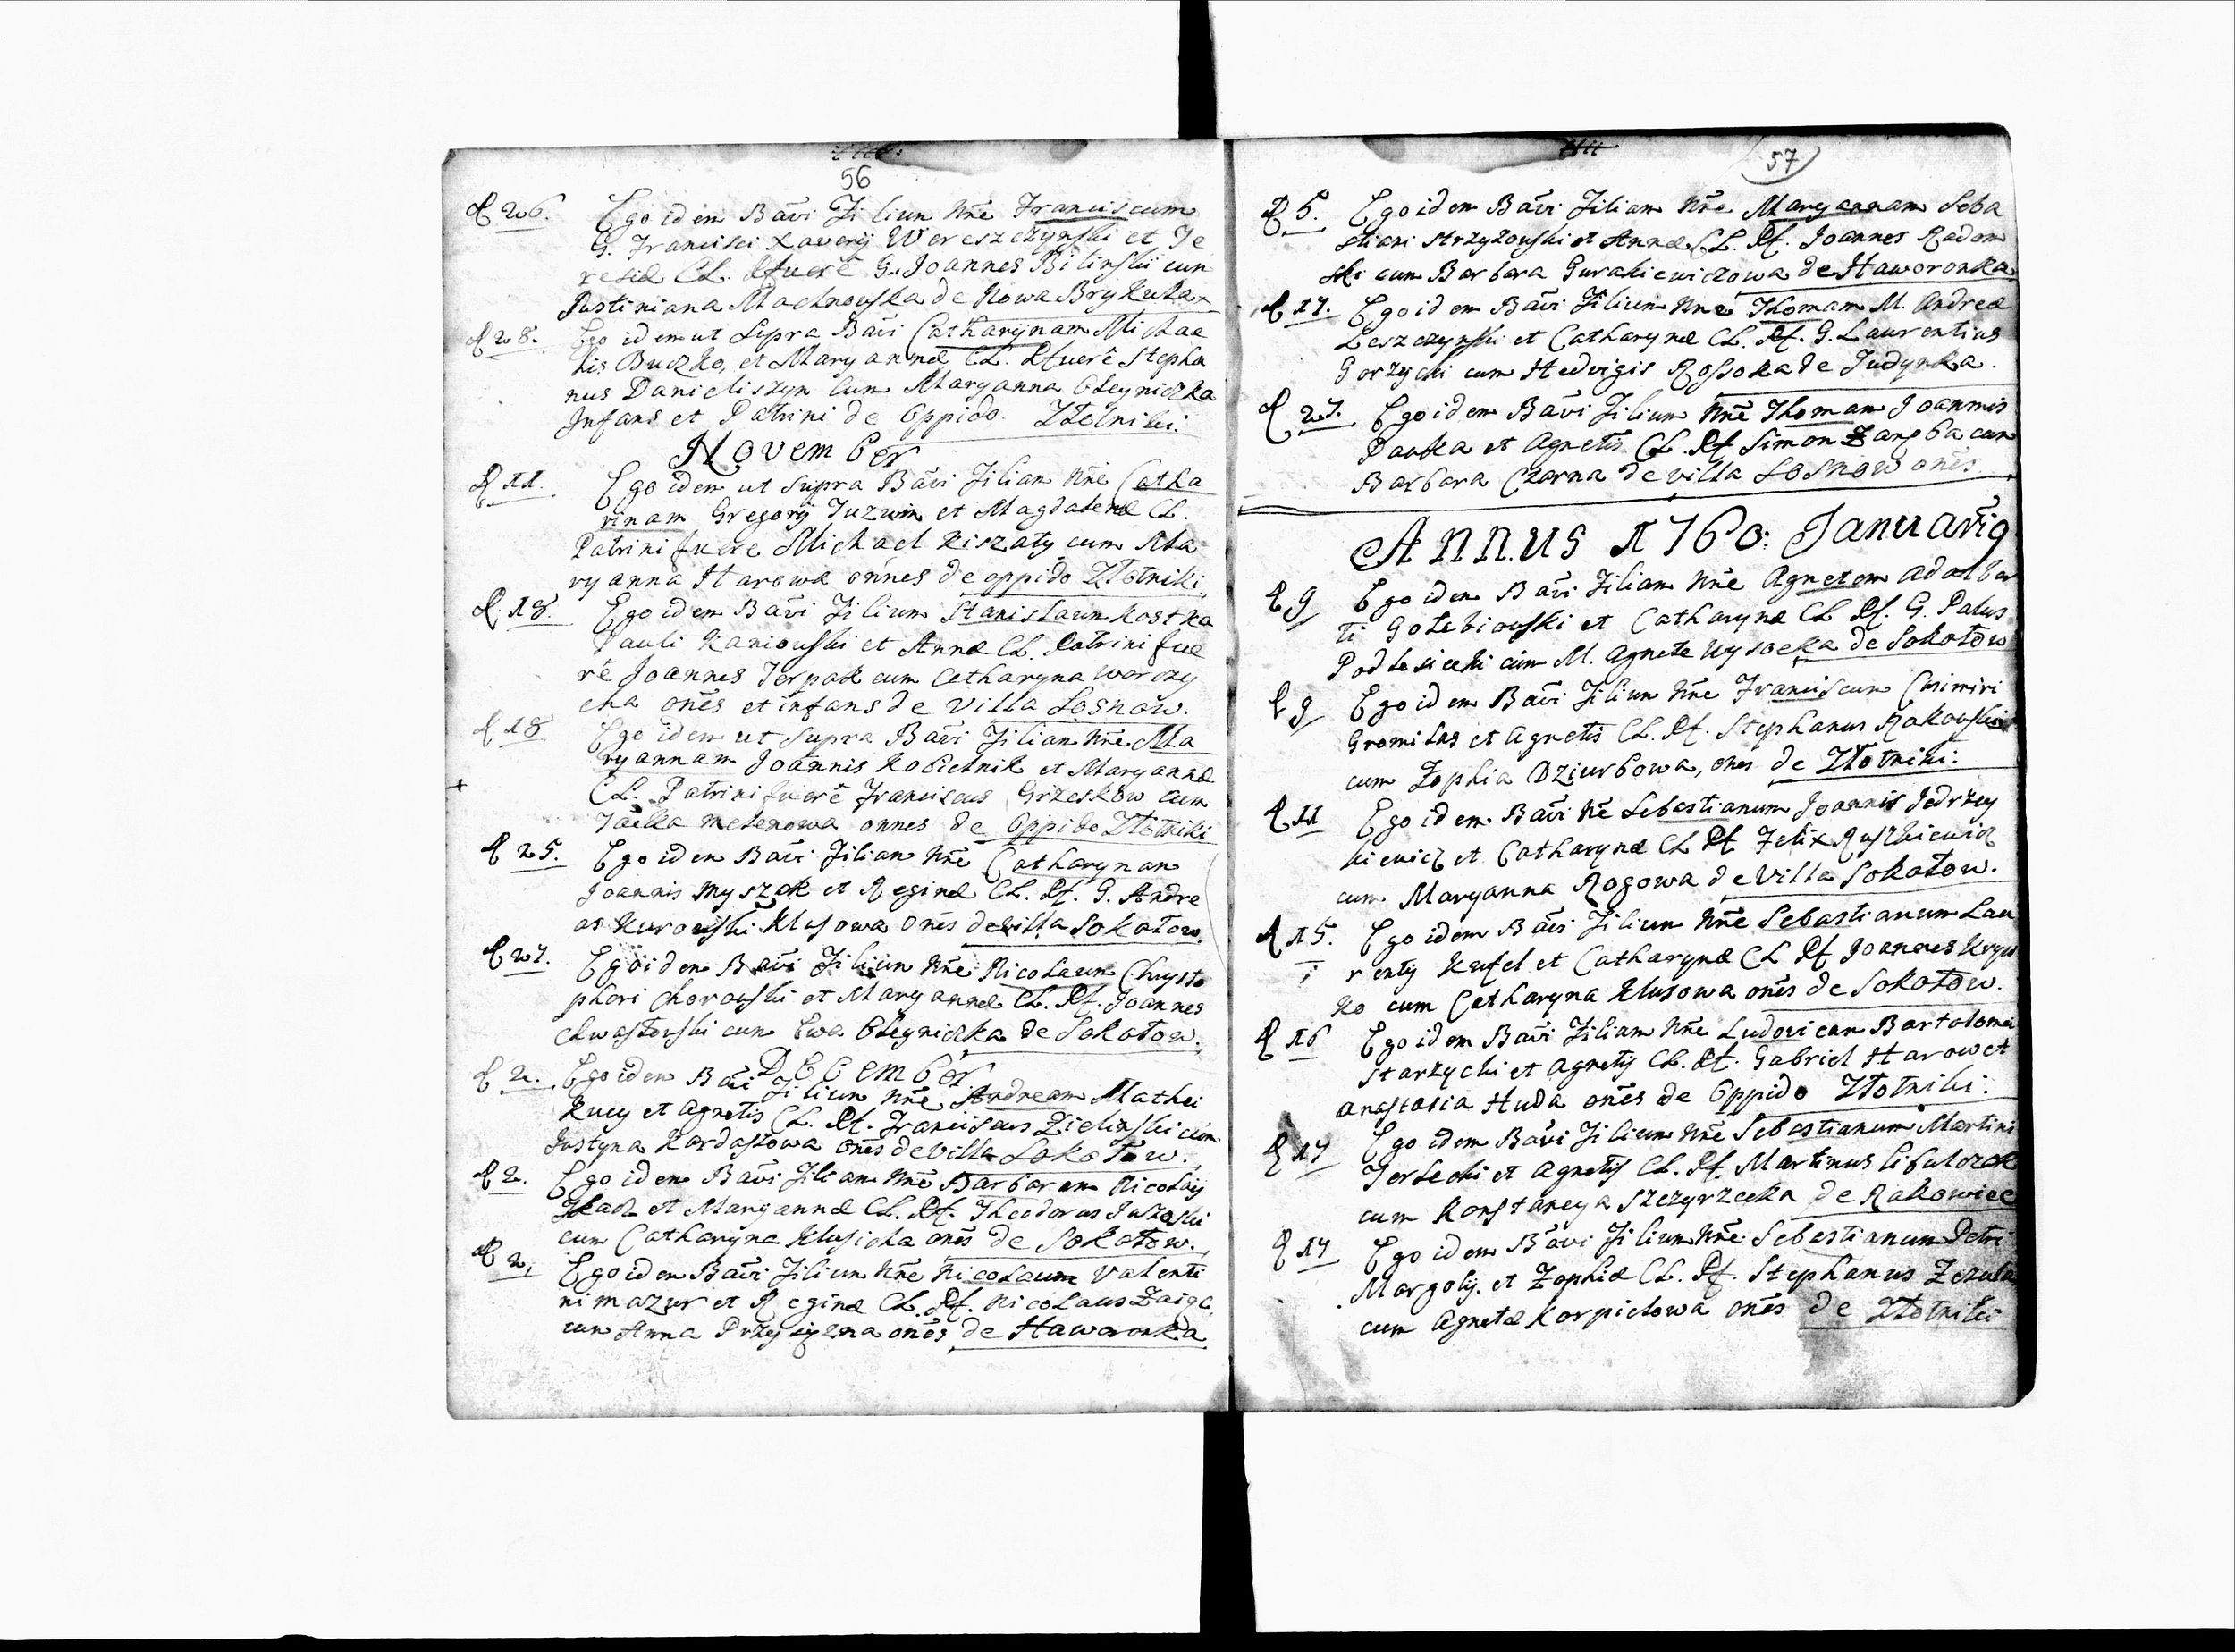 56
D 26. Ego idem Bavi Filium Nñe Franciscum
G. Francisci Xaverij Wereszczynski et Te
resiæ CL. Pfuerē G. Joannes Bilinski cum
Justiniana Machnowska de Nowa Brykula
D 28. Ego idem ut Supra Bavi Catharynam Michae
lis Buczko, et Maryannæ CL. Pfuerē Stepha
nus Danieliszyn cum Maryanna Oleyniczka
Infans et Patrini de Oppido Złotniki.
November
D 11. Ego idem ut Supra Bavi Filiam Nñe Catha
rinam Gregorij Juzwin et Magdalenæ CL.
Patrini fuere Michael Kiszaty cum Ma
ryanna Harowa onnes de oppido Złotniki
D. 18. Ego idem Bavi Filium Stanislaum Kostka
Pauli Kaniowski et Annæ CL. Patrini fue
rē Joannes Jerpak cum Catharyna Worozy
cha onēs et infans de Villa Losnow.
D 18 Ego idem ut Supra Bavi Filiam Nñe Ma
ryannam Joannis Kobielnik et Maryannæ
CL. Patrini fuerē Franciscus Grzeskow cum
Jacka Melenowa onnes de Oppido Złotniki
D 25. Ego idem Bavi Filiam Nñe Catharynam
Joannis Myszak et Reginæ CL. Pf. G. Andre
as Kurowski Klusowa onēs de villa Sokołow.
D 27. Ego idem Bavi Filium Nñe Nicolaum Chrysto
phori Chorowski et Maryannæ CL. Pf. Joannes
Chwastowski cum Ewa Oleyniczka de Sokołow.
December
D 2. Ego idem Bavi Filium Nñe Andream Mathei
Kucy et Agnetis CL. Pf. Franciscus Zielinski cum
Justyna Kardaszowa onēs de villa Sokołow.
D 2. Ego idem Bavi Filiam Nñe Barbaram Nicolaij
et Maryannæ CL. Pf. Theodorus
cum Catharyna Klusicha onēs de Sokołow.
D 2, Ego idem Bavi Filium Nñe Nicolaum Valenti
ni Mazur et Reginæ CL. Pf. Nicolaus Zaigc
cum Anna Przysiężna onēs de Haworonka
57
D 5. Ego idem Bavi Filiam Nñe Maryannam Seba
stiani Strzyzowski et Annæ CL. Pf. Joannes Radom
ski cum Barbara Gurakiewiczowa de Haworonka
D 17. Ego idem Bavi Filium Nñe Thomam M. Andreæ
Leszczynski et Catharynæ CL. Pf. G. Laurentius
Gorzycki cum Hedvigis Rossoka de Judynka.
D 27. Ego idem Bavi Filium Nñe Thomam Joannis
Pauka et Agnetis CL. Pf Simon Zaręba cum
Barbara Czarna de villa Losnow onēs.
Annus 1760: Januarig
D 9 Ego idem Bavi Filiam Nñe Agnetem Adalber
ti Gołebiowski et Catharynæ CL Pf. G. Palus
Podlesiecki cum M. Agnete Wysocka de Sokołow
D 9 Ego idem Bavi Filium Nñe Franciscum Casimiri
Gromilas et Agnetis CL. Pf. Stephanus Rakowski
cum Zophia Dziurbowa, ones de Złotniki.
D 11 Ego idem Bavi Nē Sebastianum Joannis Jedrzey
kiewicz et Catharynæ CL Pf Felix Ruszkiewicz
cum Maryanna Rogowa de Villa Sokołow.
D 15. Ego idem Bavi Filium Nñe Sebastianum Lau
rentij Kufel et Catharynæ CL Pf Joannes Kryw
ko cum Catharyna Klusowa onēs de Sokołow.
D 16 Ego idem Bavi Filiam Nñe Ludovicam Bartolomei
Starzycki et Agnetis CL. Pf. Gabriel Harow et
Anastasia Huda onēs de Oppido Złotniki.
D 17 Ego idem Bavi Filium Nñe Sebastianum Martini
Terlecki et Agnetis CL. Pf. Martinus Cibulczak
cum Konstancya Szczyrzecka de Rakowiec
D 17 Ego idem Bavi Filium Nñe Sebastianum Petri
Margolij et Zophiæ CL. Pf. Stephanus Zezula
cum Agnetæ Korpielowa onēs de Złotniki